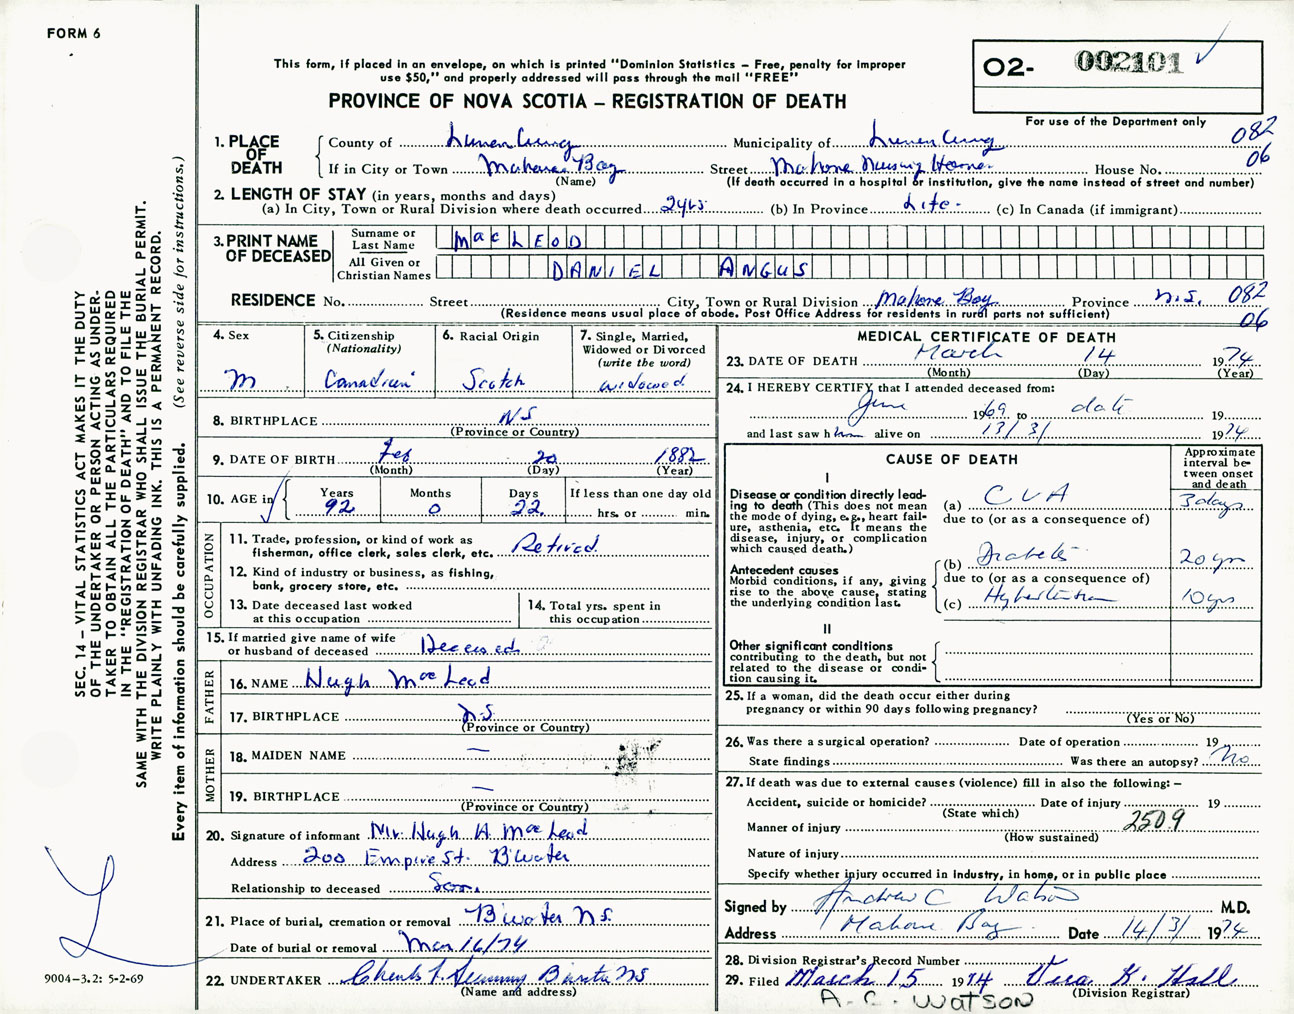 FORM 6
This form, if placed in an envelope, on which is printed "Dominion Statistics – Free, penalty for improper
use $50," and properly addressed will pass through the mail "FREE"
PROVINCE OF NOVA SCOTIA – REGISTRATION OF DEATH
O2- 002101
For use of the Department only
082
06
1. PLACE OF DEATH
County of Lunenburg Municipality of Lunenburg
If in City or Town Mahone Bay Street Mahone Nursing Home House No.
(Name) (If death occurred in a hospital or institution, give the name instead of street and number)
2. LENGTH OF STAY (in years, months and days)
(a) In City, Town or Rural Division where death occurred 2 yrs. (b) In Province Life - (c) In Canada (if immigrant)
3. PRINT NAME OF DECEASED
Surname or Last Name MacLEOD
All Given or Christian Names DANIEL ANGUS
RESIDENCE No. Street City, Town or Rural Division Mahone Bay Province N.S. 082
(Residence means usual place of abode. Post Office Address for residents in rural parts not sufficient) 06
4. Sex
M
5. Citizenship
(Nationality)
Canadian
6. Racial Origin
Scotch
7. Single, Married,
Widowed or Divorced
(write the word)
widowed
8. BIRTHPLACE NS
(Province or Country)
9. DATE OF BIRTH Feb 20 1882
(Month) (Day) (Year)
10. AGE in
Years 92
Months 0
Days 22
If less than one day old
hrs. or min.
OCCUPATION
11. Trade, profession, or kind of work as
fisherman, office clerk, sales clerk, etc. Retired
12. Kind of industry or business, as fishing,
bank, grocery store, etc.
13. Date deceased last worked
at this occupation
14. Total yrs. spent in
this occupation
15. If married give name of wife
or husband of deceased Deceased
FATHER
16. NAME Hugh MacLeod
17. BIRTHPLACE N.S.
(Province or Country)
MOTHER
18. MAIDEN NAME —
19. BIRTHPLACE —
(Province or Country)
20. Signature of informant Mr. Hugh A MacLeod
Address 200 Empire St. B'water
Relationship to deceased Son.
21. Place of burial, cremation or removal B'water N.S.
Date of burial or removal Mar 16/74
22. UNDERTAKER
(Name and address)
MEDICAL CERTIFICATE OF DEATH
23. DATE OF DEATH March 14 1974
(Month) (Day) (Year)
24. I HEREBY CERTIFY that I attended deceased from:
June 1969 to date 19
and last saw him alive on 13/3/ 1974
CAUSE OF DEATH
Approximate
interval be-
tween onset
and death
I
Disease or condition directly lead-
ing to death (This does not mean
the mode of dying, e.g., heart fail-
ure, asthenia, etc. It means the
disease, injury, or complication
which caused death.)
(a) CVA 3 days
due to (or as a consequence of)
Antecedent causes
Morbid conditions, if any, giving
rise to the above cause, stating
the underlying condition last.
(b) Diabetes 20 yrs
due to (or as a consequence of)
(c) Hypertension 10 yrs
II
Other significant conditions
contributing to the death, but not
related to the disease or condi-
tion causing it.
25. If a woman, did the death occur either during
pregnancy or within 90 days following pregnancy?
(Yes or No)
26. Was there a surgical operation? Date of operation 19
State findings Was there an autopsy? No
27. If death was due to external causes (violence) fill in also the following: –
Accident, suicide or homicide? Date of injury 19
(State which)
Manner of injury 2509
(How sustained)
Nature of injury
Specify whether injury occurred in industry, in home, or in public place
Signed by Andrew C Watson M.D.
Address Mahone Bay Date 14/3/ 1974
28. Division Registrar's Record Number
29. Filed March 15 1974 Vera K. Hall
(Division Registrar)
A. C. WATSON
SEC. 14 – VITAL STATISTICS ACT MAKES IT THE DUTY
OF THE UNDERTAKER OR PERSON ACTING AS UNDER-
TAKER TO OBTAIN ALL THE PARTICULARS REQUIRED
IN THE "REGISTRATION OF DEATH" AND TO FILE THE
SAME WITH THE DIVISION REGISTRAR WHO SHALL ISSUE THE BURIAL PERMIT.
WRITE PLAINLY WITH UNFADING INK. THIS IS A PERMANENT RECORD.
Every item of information should be carefully supplied. (See reverse side for instructions.)
9004–3.2: 5-2-69